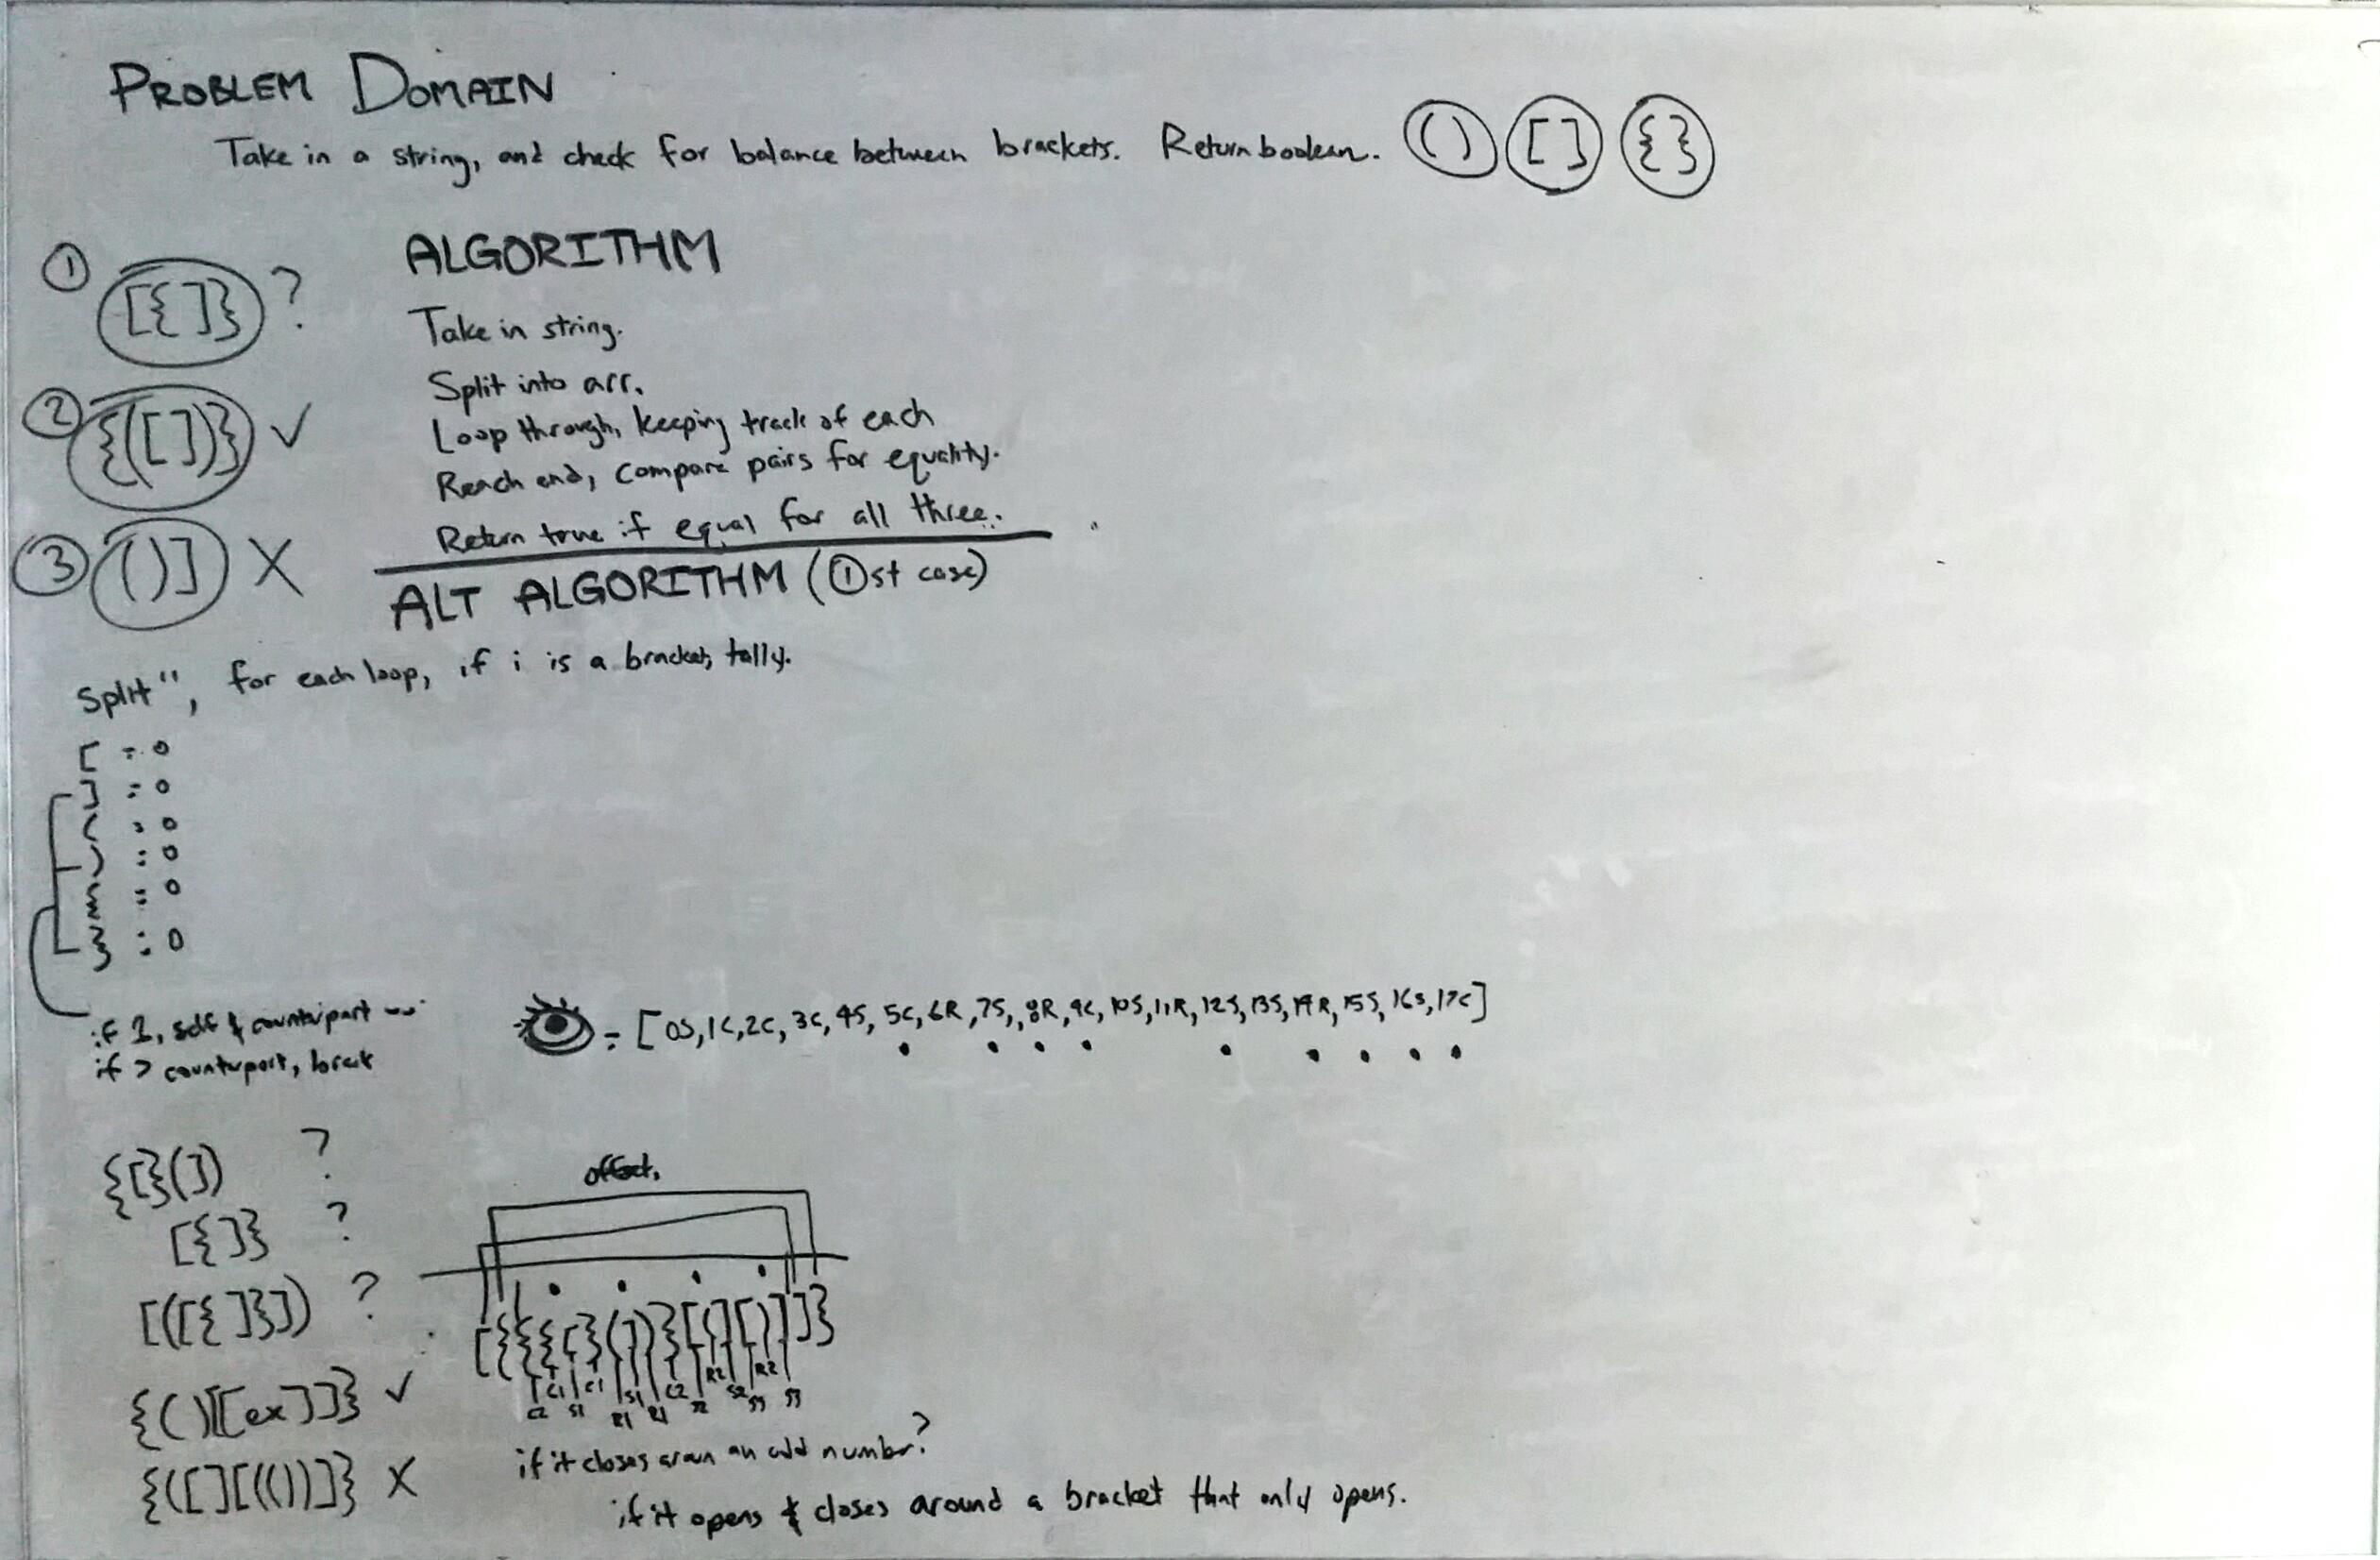 PROBLEM DOMAIN
Take in a string, and check for balance between brackets. Return boolean. () [] {}
① [{]} ?
② {([])} ✓
③ ()] X
ALGORITHM
Take in string.
Split into arr.
Loop through, keeping track of each
Reach end, compare pairs for equality.
Return true if equal for all three.
ALT ALGORITHM (①st case)
Split '', for each loop, if i is a bracket, tally.
[ : 0
] : 0
( : 0
) : 0
{ : 0
} : 0
if 1, self & counterpart --
if > counterpart, break
= [0S, 1C, 2C, 3C, 4S, 5C, 6R, 7S, 8R, 9C, 10S, 11R, 12S, 13S, 14R, 15S, 16S, 17C]
{[}(]) ?
[{]} ?
[([{]}]) ?
{()[[ex]]} ✓
{([][(())]} X
offset,
[{{{[}(])}[(][)]]]}
C1 C1 S1 C2 R2 S2 R2
C2 S1 R1 R1 S3 S3
if it closes an odd number?
if it opens & closes around a bracket that only opens.